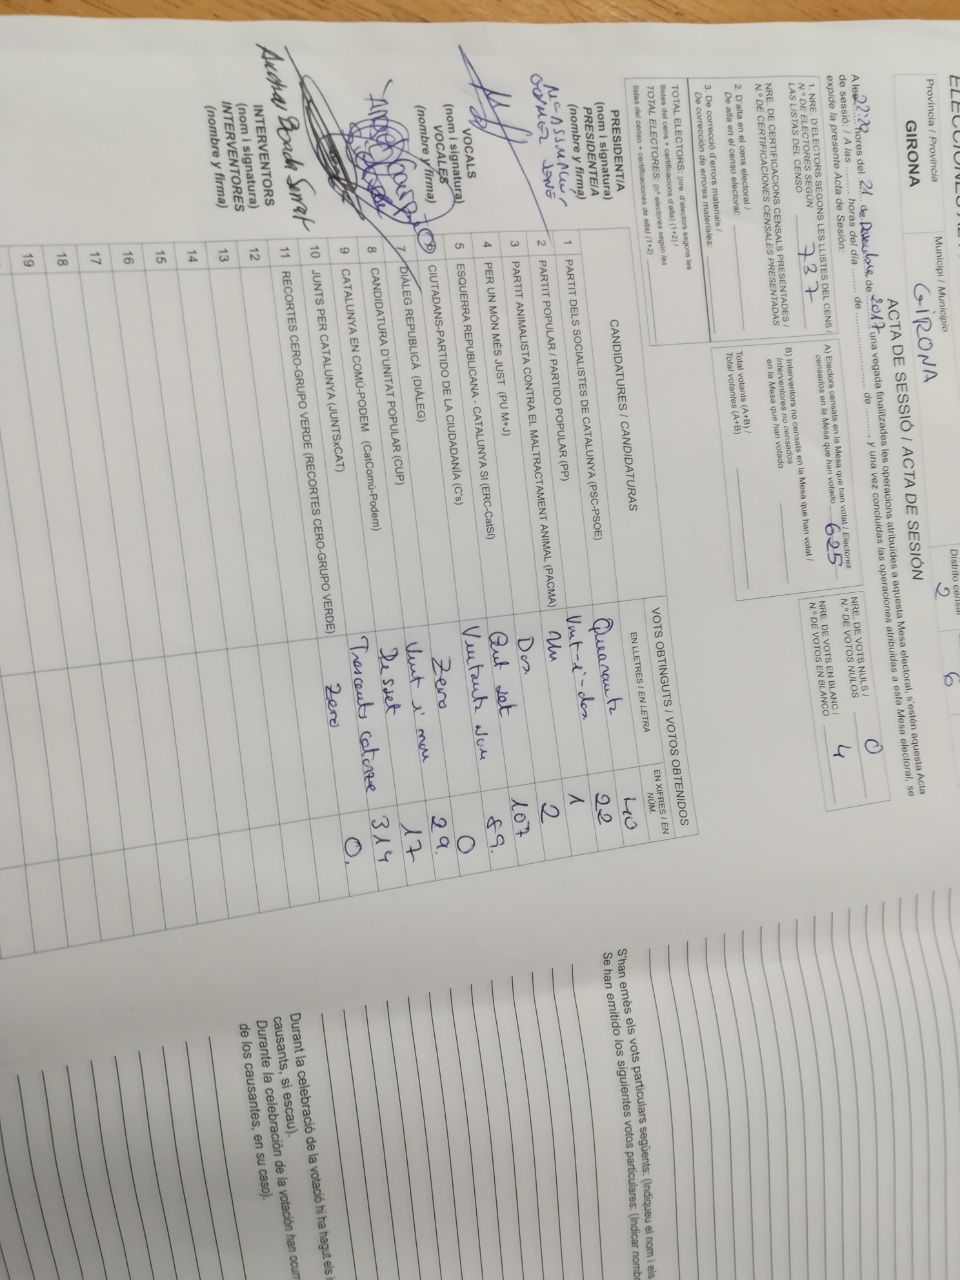 ELECCIONES AL
Província / Provincia
GIRONA
Municipi / Municipio
GIRONA
Distrito censal
2
6
ACTA DE SESSIÓ / ACTA DE SESIÓN
A les 22:20 hores del 21 de Desembre de 2017, una vegada finalitzades les operacions atribuïdes a aquesta Mesa electoral, s'estén aquesta Acta
de sessió: / A las ......... horas del día ......... de ......... de ........., y una vez concluidas las operaciones atribuidas a esta Mesa electoral, se
expide la presente Acta de Sesión:
1. NRE. D'ELECTORS SEGONS LES LLISTES DEL CENS /
N.º DE ELECTORES SEGÚN
LAS LISTAS DEL CENSO 737
NRE. DE CERTIFICACIONS CENSALS PRESENTADES /
N.º DE CERTIFICACIONES CENSALES PRESENTADAS
2. D'alta en el cens electoral /
De alta en el censo electoral:
3. De correcció d'errors materials /
De corrección de errores materiales:
TOTAL ELECTORS: (nre. d'electors segons les
llistes del cens + certificacions d'alta) (1+2) /
TOTAL ELECTORES: (nº electores según las
listas del censo + certificaciones de alta) (1+2)
A) Electors censats en la Mesa que han votat / Electores
censados en la Mesa que han votado 625
B) Interventors no censats en la Mesa que han votat /
Interventores no censados
en la Mesa que han votado
Total votants (A+B) /
Total votantes (A+B)
NRE. DE VOTS NULS /
N.º DE VOTOS NULOS 0
NRE. DE VOTS EN BLANC /
N.º DE VOTOS EN BLANCO 4
CANDIDATURES / CANDIDATURAS
VOTS OBTINGUTS / VOTOS OBTENIDOS
EN LLETRES / EN LETRA
EN XIFRES / EN NÚM.
1 PARTIT DELS SOCIALISTES DE CATALUNYA (PSC-PSOE) Quaranta 40
2 PARTIT POPULAR / PARTIDO POPULAR (PP) Vint-i-dos 22
3 PARTIT ANIMALISTA CONTRA EL MALTRACTAMENT ANIMAL (PACMA) Un 1
4 PER UN MÓN MÉS JUST (PU M+J) Dos 2
5 ESQUERRA REPUBLICANA - CATALUNYA SI (ERC-CatSI) set 107
6 CIUTADANS-PARTIDO DE LA CIUDADANÍA (C's) Vuitanta nou 89.
7 DIÀLEG REPUBLICÀ (DIÀLEG) Zero 0
8 CANDIDATURA D'UNITAT POPULAR (CUP) Vint i nou 29.
9 CATALUNYA EN COMÚ-PODEM (CatComú-Podem) Desset 17
10 JUNTS PER CATALUNYA (JUNTSxCAT) Trescents catorze 314
11 RECORTES CERO-GRUPO VERDE (RECORTES CERO-GRUPO VERDE) Zero 0.
12
13
14
15
16
17
18
19
PRESIDENT/A
(nom i signatura)
PRESIDENTE/A
(nombre y firma)
VOCALS
(nom i signatura)
VOCALES
(nombre y firma)
INTERVENTORS
(nom i signatura)
INTERVENTORES
(nombre y firma)
S'han emès els vots particulars següents: (Indiqueu el nom i els
Se han emitido los siguientes votos particulares: (Indicar nombre
Durant la celebració de la votació hi ha hagut els
causants, si escau).
Durante la celebración de la votación han ocur
de los causantes, en su caso).